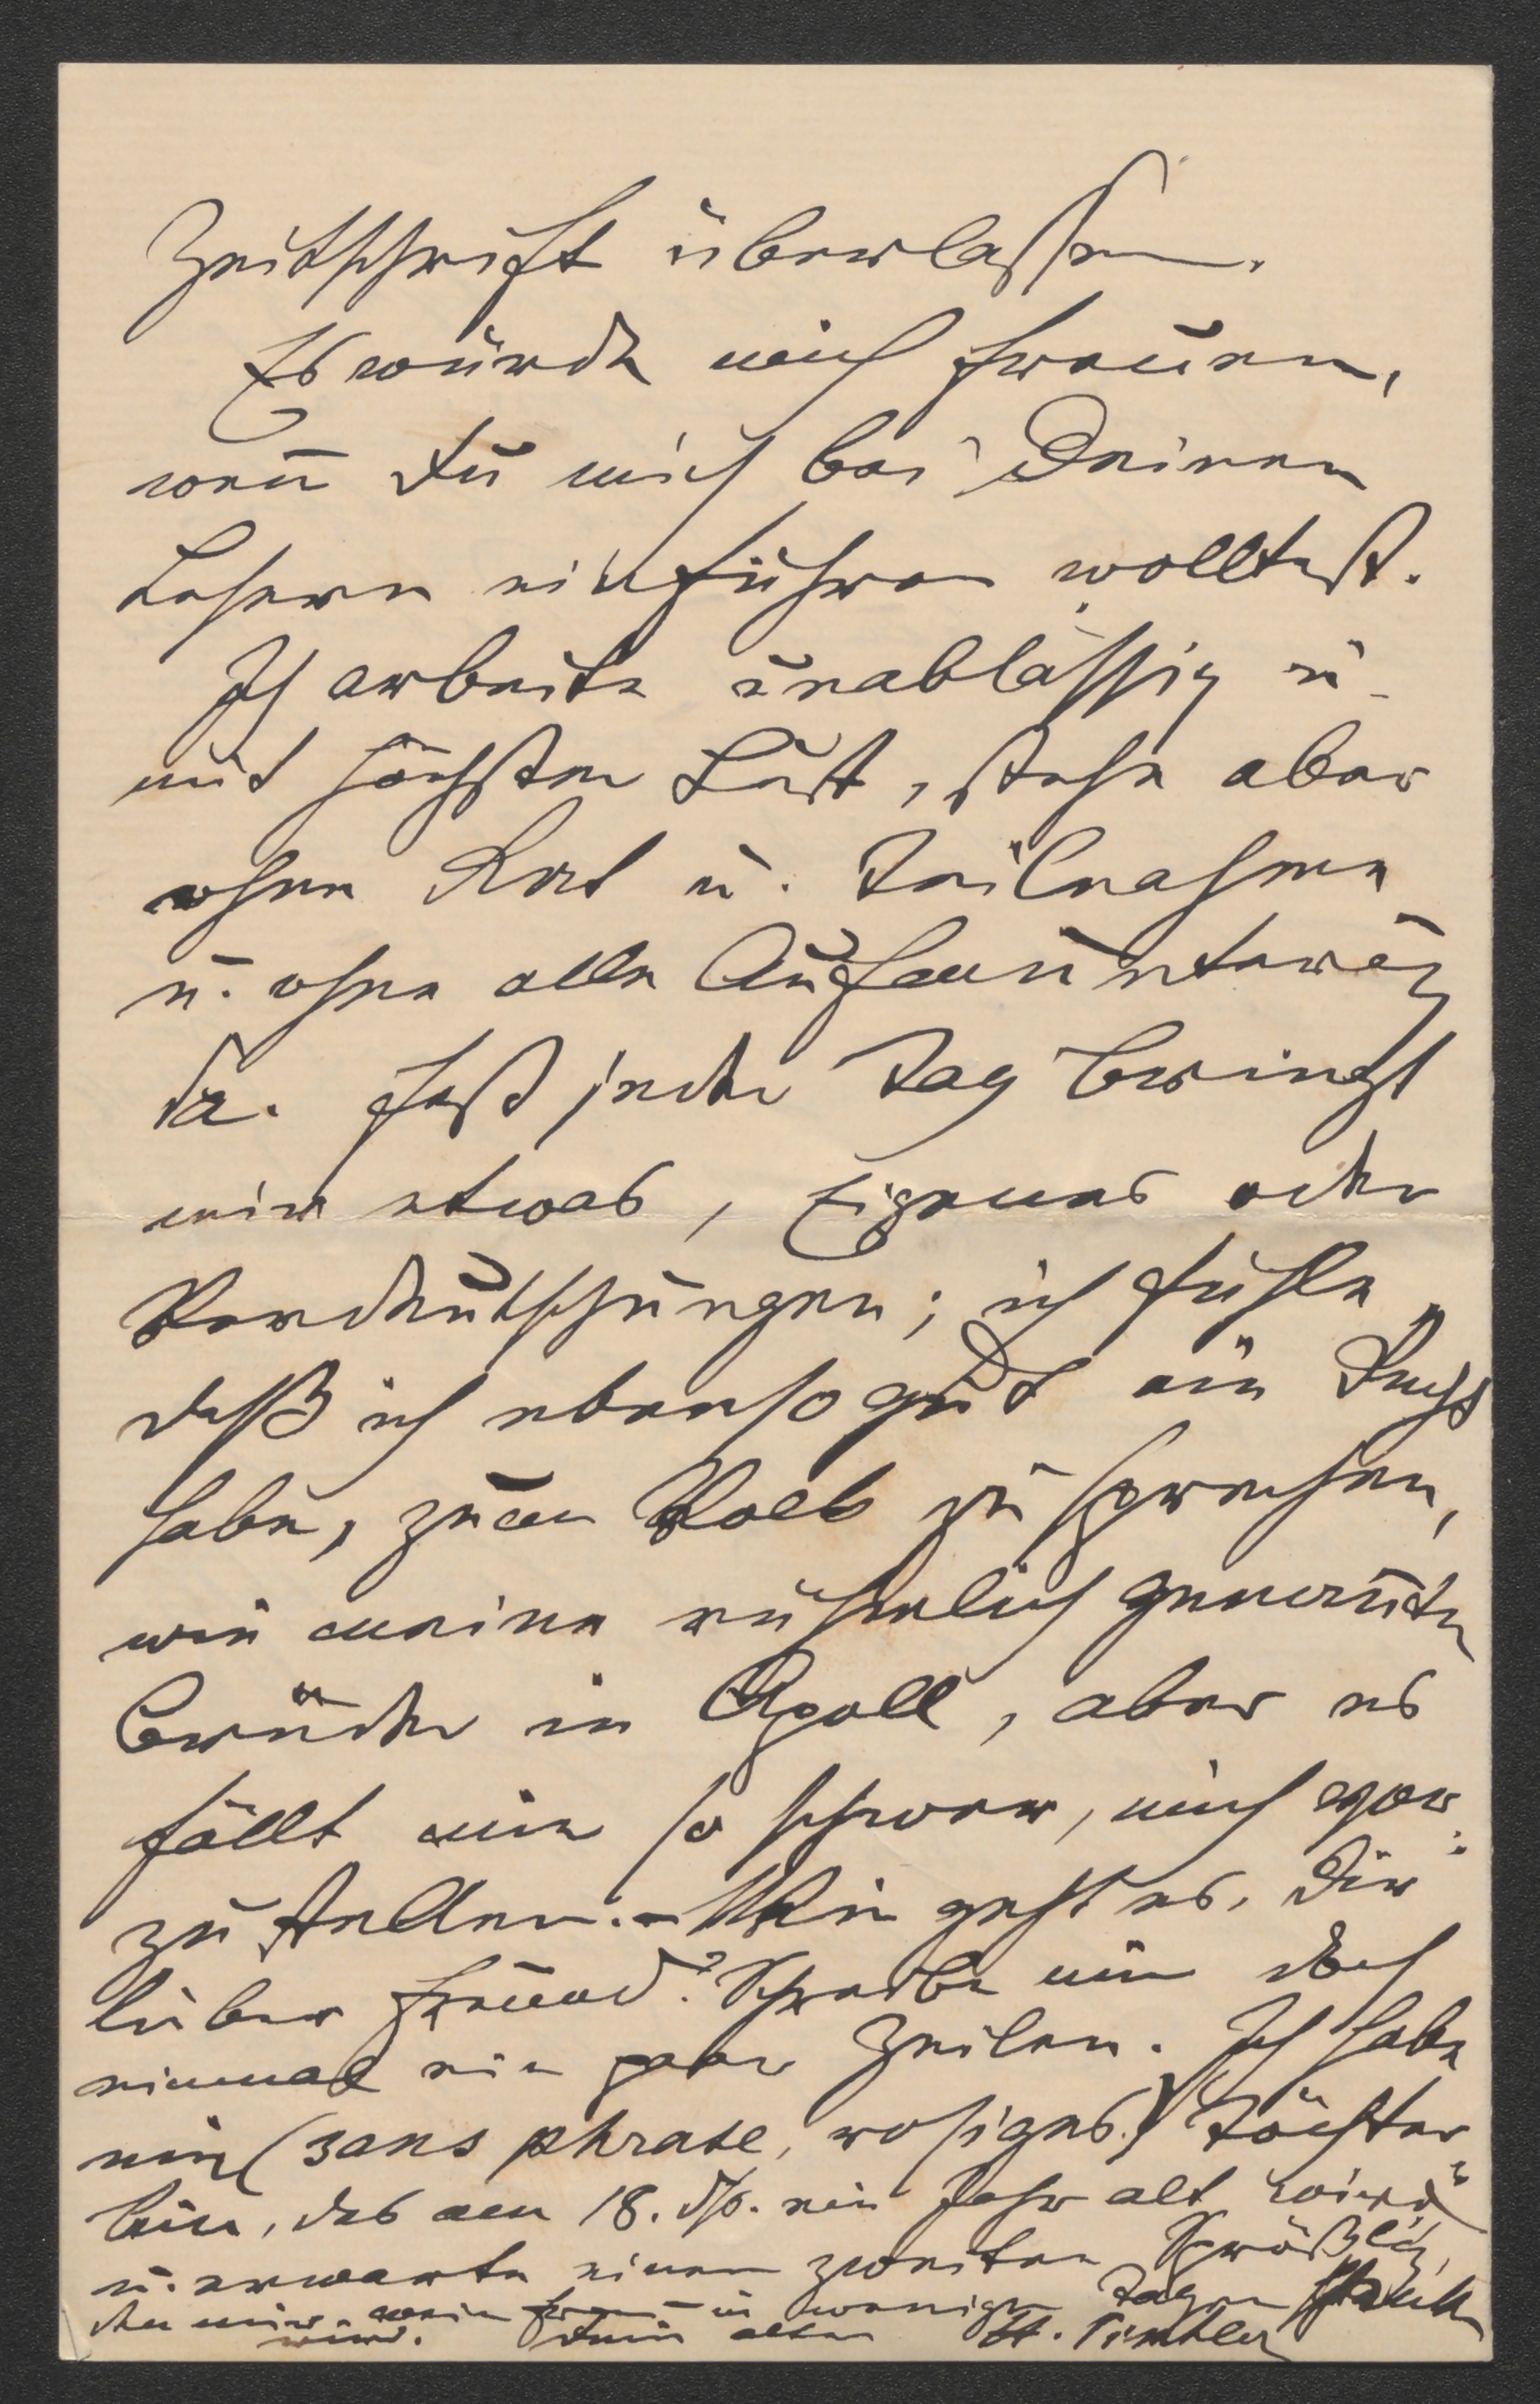 Zeitschrift überlassen.
Es würde mich freuen,
wen̄ Du mich bei Deinen
Lesern einführen wolltest.
Ich arbeite unablässig u.
mit höchster Lust, stehe aber
ohne Rat u. Teilnahme
u. ohne alle Aufmunterūg
da. Fast jeder Tag bringt
mir etwas, Eigenes oder
Verdeutschungen; ich fühle,
daß ich ebensogut ein Recht
habe, zum Volk zu sprechen,
wie meine rühmlich genan̄ten
Brüder in Apoll, aber es
fällt mir so schwer, mich vor-
zustellen. – Wie geht es Dir
lieber Freund? Schreibe mir doch
einmal ein paar Zeilen. Ich habe
ein (sans phrase, rosiges!) Töchter
lein, das am 18. ds. ein Jahr alt wird
u. erwarte einen zweiten Sprößling,
der mir meine Frau in wenigen Tagen schenken
wird. Dein alter